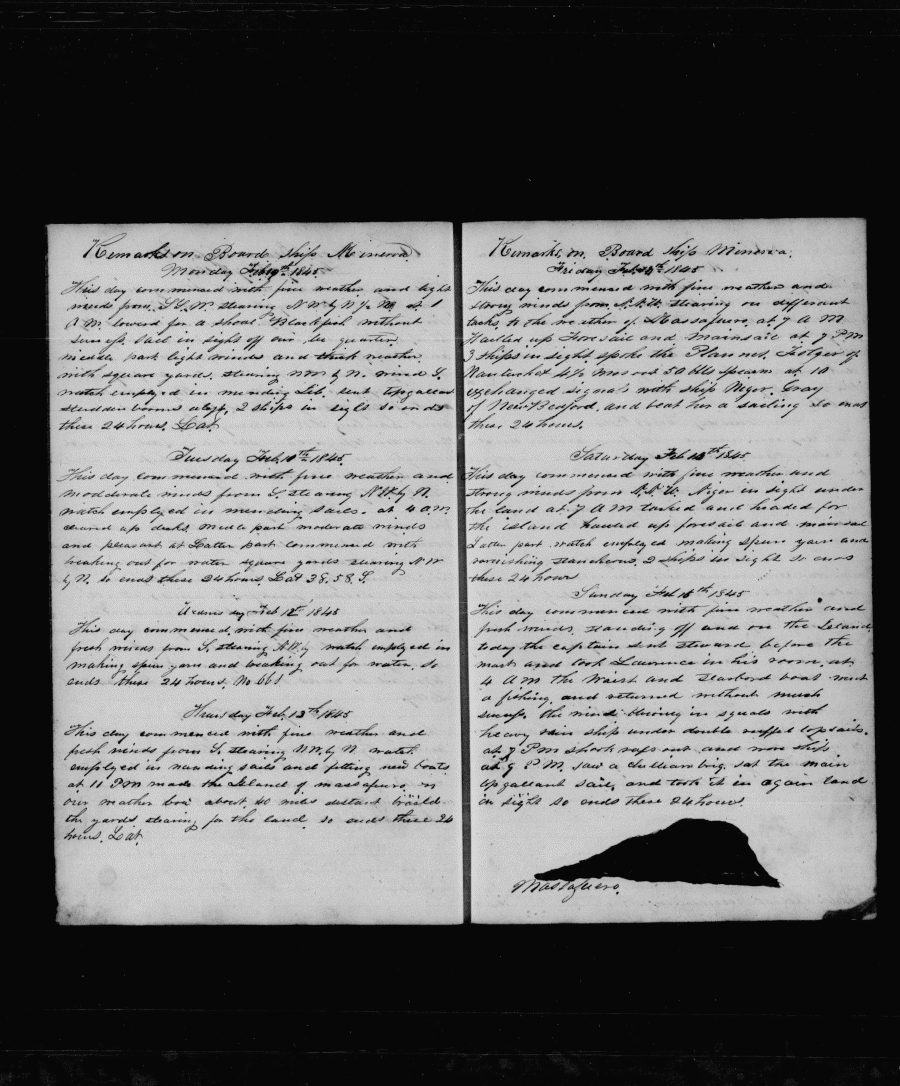 Remarks on Board Ship Minerva
Monday Feb 1845
This day commenced with fine weather and light
winds from S.S.W. stearing N W by N 1/2 W, at 1
A M. lowerd for a shoal Blackfish without
sucess, sail in sight off our lee quarter
middle part light winds and thick weather
with square yards, stearing NW by N. wind S.
watch employed in mending Jib. sent topgallant
studden booms aloft, 2 ships in sight so ends
these 24 hours. Lat
Tuesday Feb, 1845.
This day commenced with fine weather and
modderate winds from S. stearing N W. by N.
watch employed in mending sails. at 4 A M
cleared up decks. midle part moderate winds
and pleasant at Latter part commenced with
breaking out for water square yards stearing N W
by N. so ends these 24 hours, Lat 38,58 S.
Wednesday Feb 12th 1845
This day commenced with fine weather and
fresh winds from S. stearing N.W. by watch employed in
making spun yarn and breaking out for water. So
ends these 24 hours.
Thursday Feb, 13th 1845
This day commenced with fine weather and
fresh winds from S. stearing N.W. by N watch
employed in mending sails and fitting new boats
at 11 P M made the Island of massafuero, on
our weather bow about 40 miles distant braced
the yards, stearing for the land, so ends these 24
hours, Lat.
Remarks, on Board Ship Minerva.
Friday Feb, 1845
This day commenced with fine weather and
strong winds from stearing on different
tacks, to the weather of Massafuero, at 7 A M
Hauled up Foresail and Mainsail at 7 PM
3 Ships in sight spoke the Planet, Folger of
Nantucket 4 1/2 mos out 50 bbls sperm at 10
exchanged signals with ship Niger, Gray
of New Bedford, and beat her a sailing so ends
these 24 hours.
Saturday Feb 1845
This day commenced with fine weather and
strong winds from Niger in sight under
the land at 7 A M tacked and headed for
the island hauled up foresail and mainsail
Latter part watch employed making spun yarn and
varnishing stanchions, 2 ships in sight so ends
these 24 hours
Sunday Feb 1845
This day commenced with fine weather and
fresh winds, standing off and on the Island
today the captain sent steward before the
mast and took Lawrence in his room, at
4 A M the Waist and Starbord boat went
a fishing, and returned without much
sucess, the wind blowing in squals with
heavy rain ship under double reeffed topsails.
at 7 P M shook reefs out and wore ship
at P M. saw a chillian brig, sat the main
topgallant sail, and took it in again land
in sight so ends these 24 hours.
Massafuero.